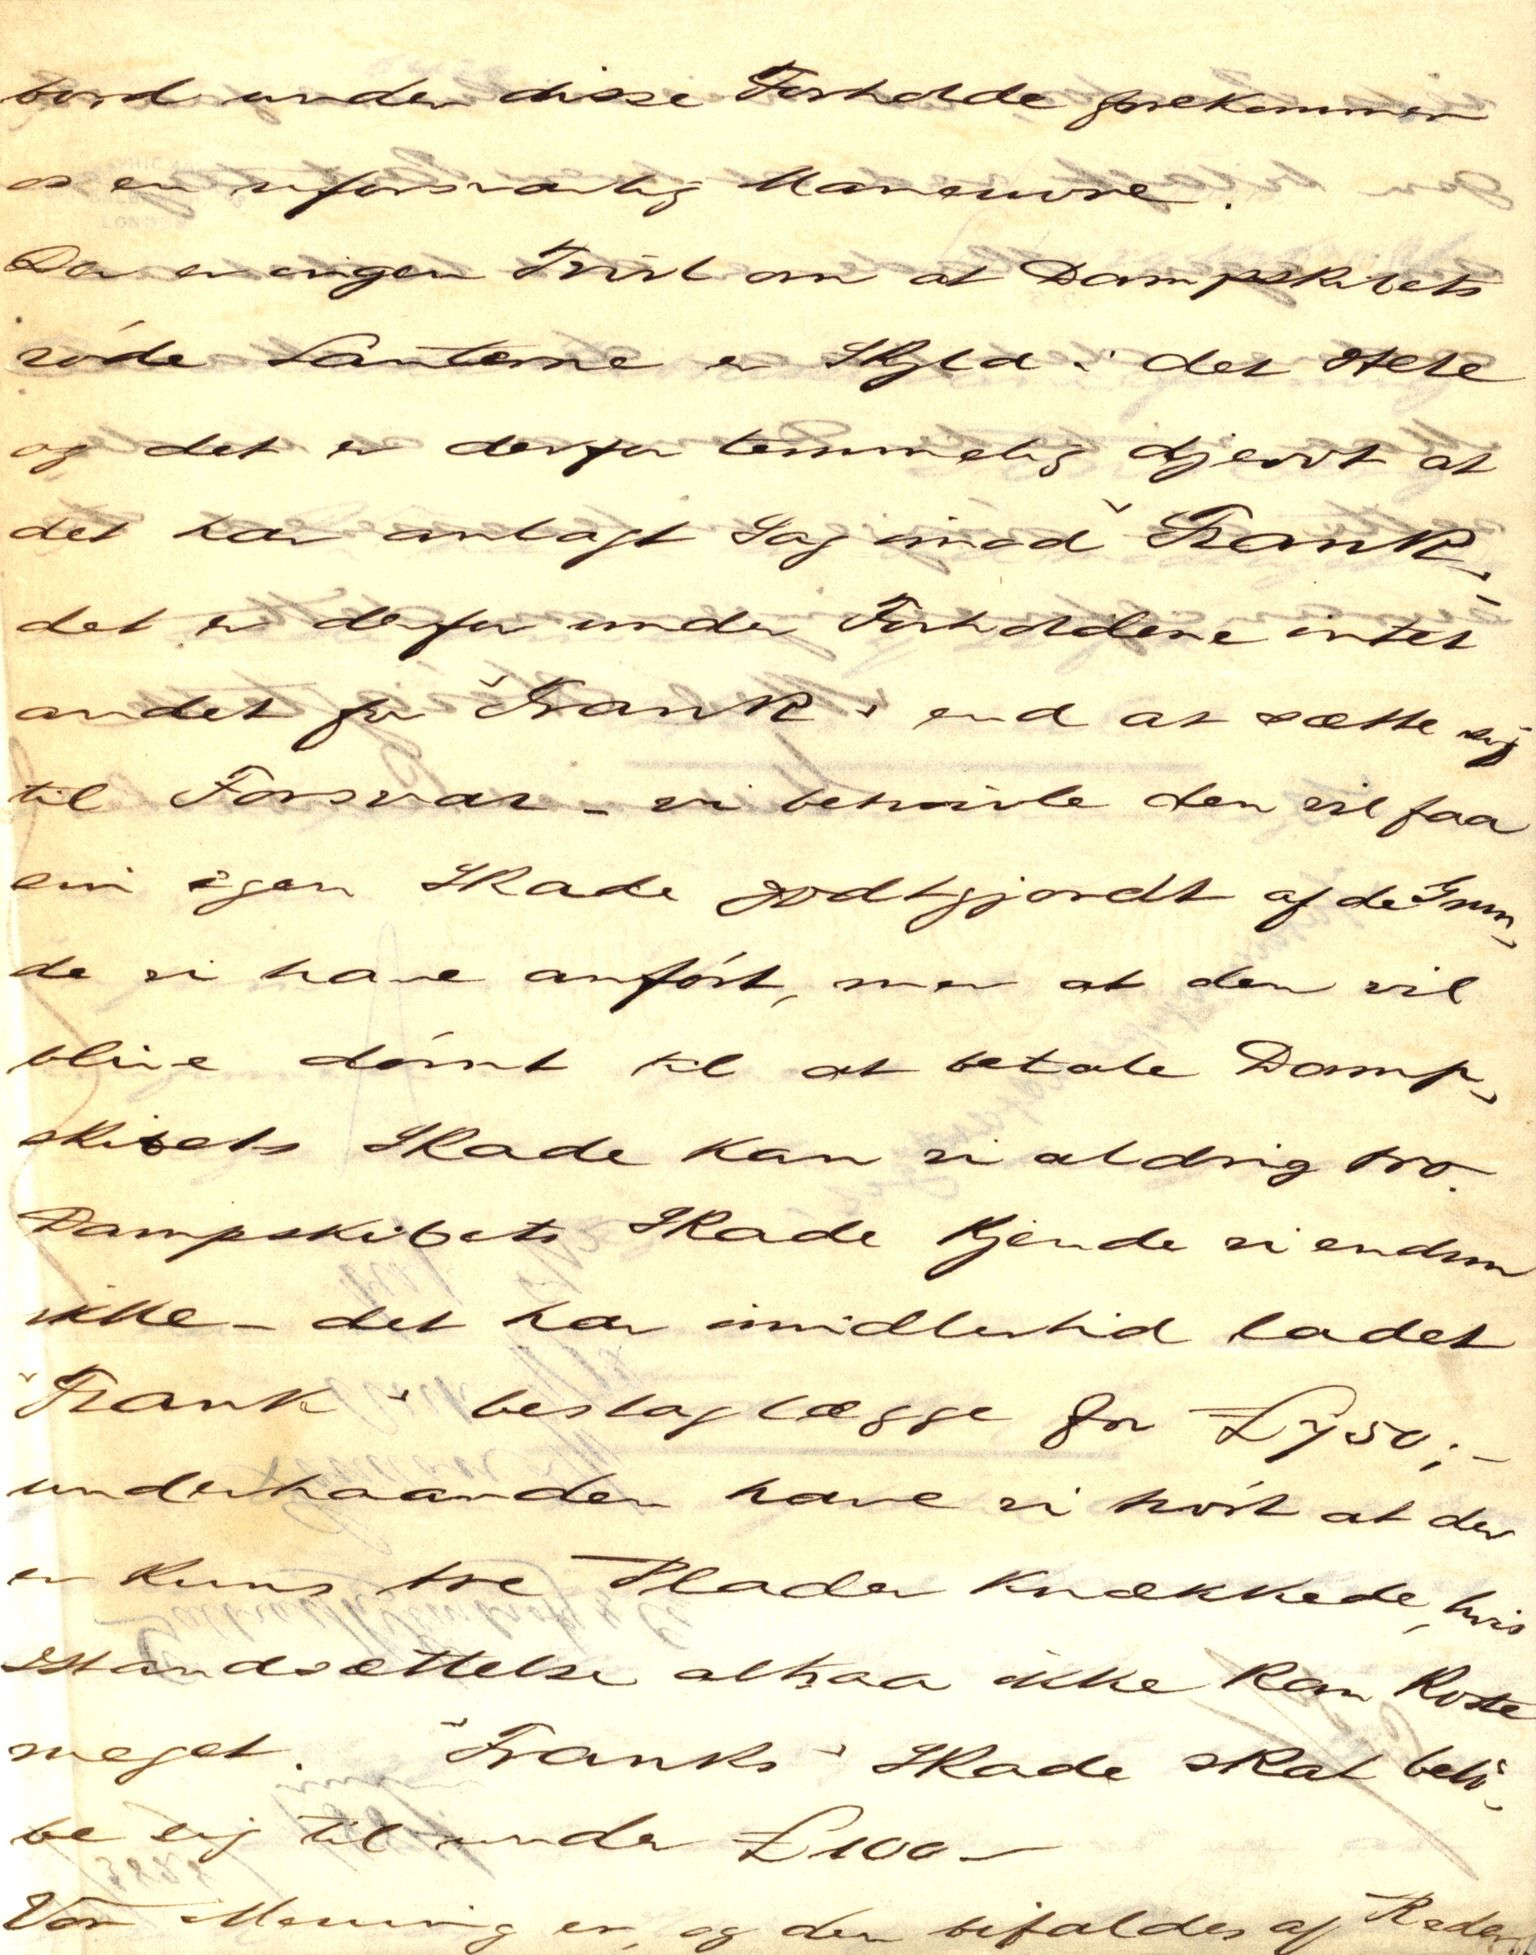 bord under disse Forholde forekommer
os en uforsvarlig Maneuvre.
Der er ingen Tvivl om at Dampskibets
røde Lanterne er Skyld i det Hele
og det er derfor temmelig djervt at
det har anlagt Sag imod "Frank",
det er derfor under Forholdene intet
andet for "Frank" end at sætte sig
til Forsvar – vi betvivle den vil faa
sin egen Skade godtgjordt af de Grun,
de vi have anført, men at den vil
blive dømt til at betale Damp,
skibets Skade kan vi aldrig tro.
Dampskibets Skade kjende vi endnu
ikke – det har imidlertid ladet
"Frank" beslaglægge for £750;–
underhaanden have vi hørt at der
er kuns tre Plader knækkede, hvis
Istandsættelse altsaa ikke kan koste
meget. "Franks" Skade skal belø,
be sig til under £100 –
Vor Mening er, og den bifaldes af Reder,